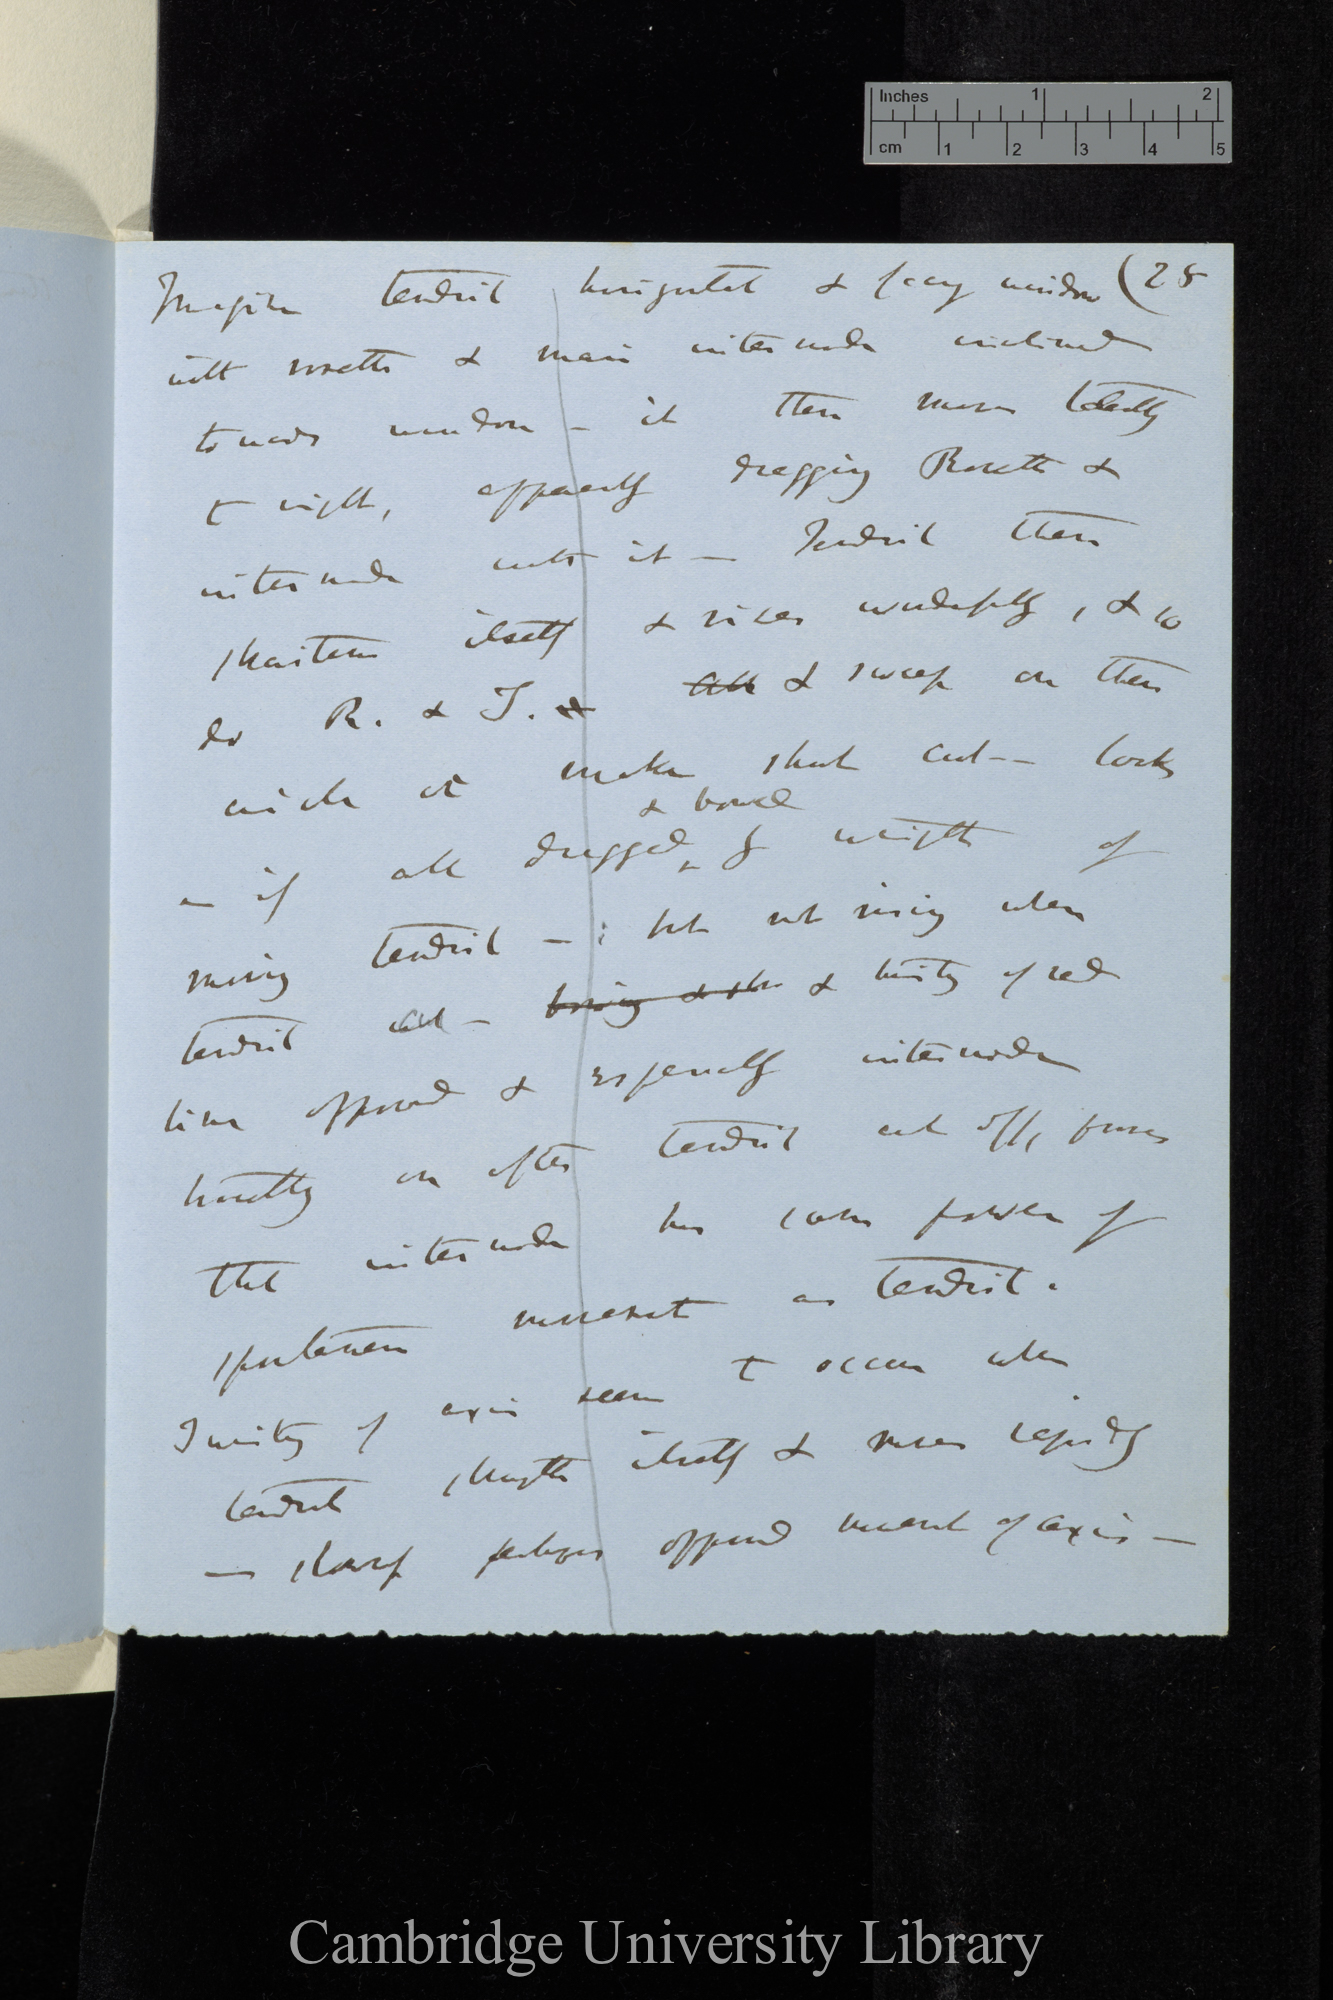 Inches 1 2
cm 1 2 3 4 5
(25
Imagine tendril horizontal & facing window
with rosette & main internode inclined
towards window — it then moves
to right, apparently dragging Rosette &
internode with it — Tendril then
shortens itself & rises wonderfully, & so
do R. & I. & all & sweep on then
circle it makes short cut -- looks
as if all dragged & bowed by weight of
moving tendril — : but not rising when
tendril cut — bowing & & twisting of red
line opposed & especially internode
on after tendril cut off, proves
that internode has same power of
spontaneous movement as tendril.
Twisting of axis seems to occur when
tendril itself & moves rapidly
— perhaps opposed movement of axis —
Cambridge University Library